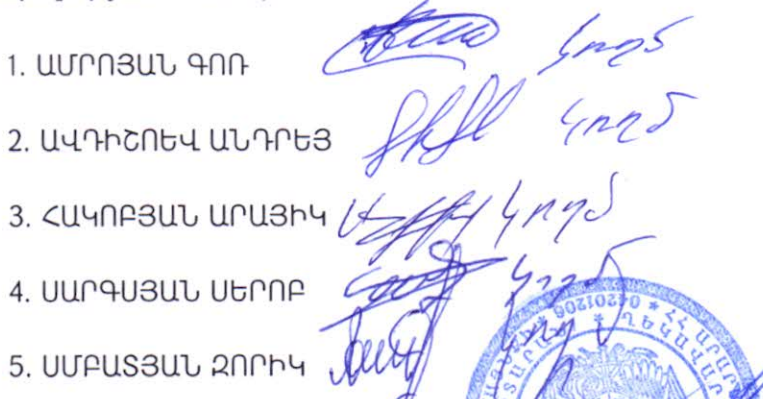 1. ԱՄՐՈՅԱՆ ԳՈՌ կողմ
2. ԱՎԴԻՇՈԵՎ ԱՆԴՐԵՅ կողմ
3. ՀԱԿՈԲՅԱՆ ԱՐԱՅԻԿ կողմ
4. ՍԱՐԳՍՅԱՆ ՍԵՐՈԲ կողմ
5. ՍՄԲԱՏՅԱՆ ԶՈՐԻԿ կողմ
04201206